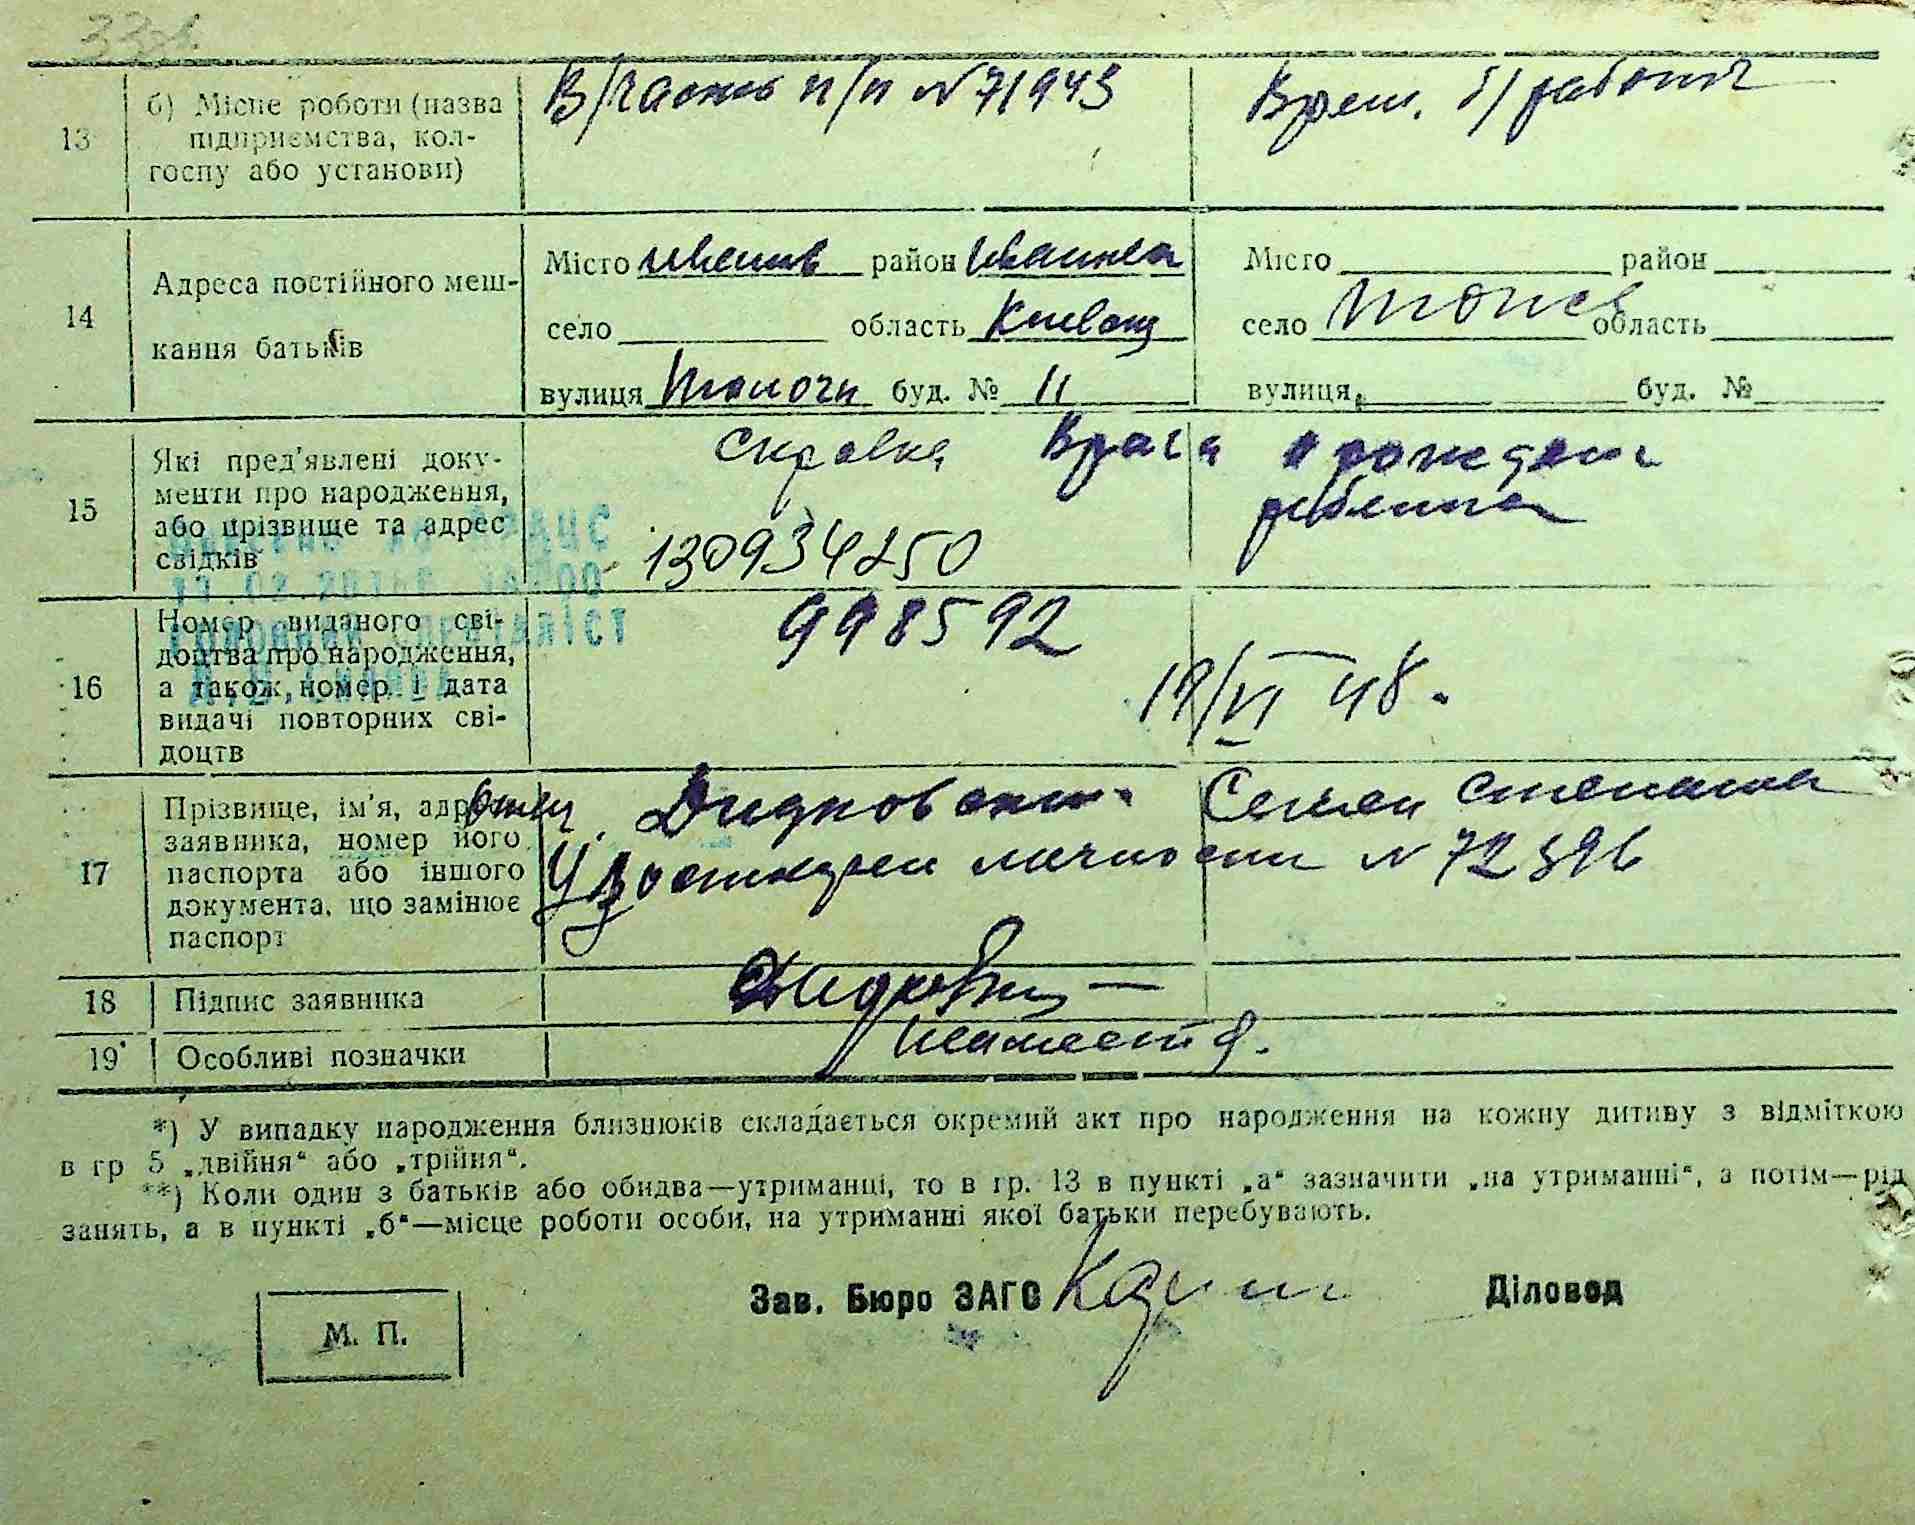 13
б) Місце роботи (назва
підприємства, кол-
госпу або установи)
В/часть п/п N 71943
Врем. б/работы
14
Адреса постійного меш-
кання батьків
Місто район
село область Киевская
вулиця буд. № 11
Місто район
село область
вулиця буд. №
15
Які пред'явлені доку-
менти про народження,
або прізвище та адрес
свідків
справка врача о рождении
ребенка
130934250
16
Номер виданого сві-
доцтва про народження,
а також, номер і дата
видачі повторних сві-
доцтв
998592
19/VI 48.
17
Прізвище, ім'я, адреса
заявника, номер його
паспорта або іншого
документа, що замінює
паспорт
отец Дидковский Семен
Удостоверен личности N 72396
18
Підпис заявника
19
Особливі позначки
*) У випадку народження близнюків складається окремий акт про народження на кожну дитину з відміткою
в гр 5 „двійня“ або „трійня“.
**) Коли один з батьків або обидва—утриманці, то в гр. 13 в пункті „а“ зазначити „на утриманні“, а потім—рід
занять, а в пункті „б“—місце роботи особи, на утриманні якої батьки перебувають.
Зав. Бюро ЗАГС
Діловод
М. П.